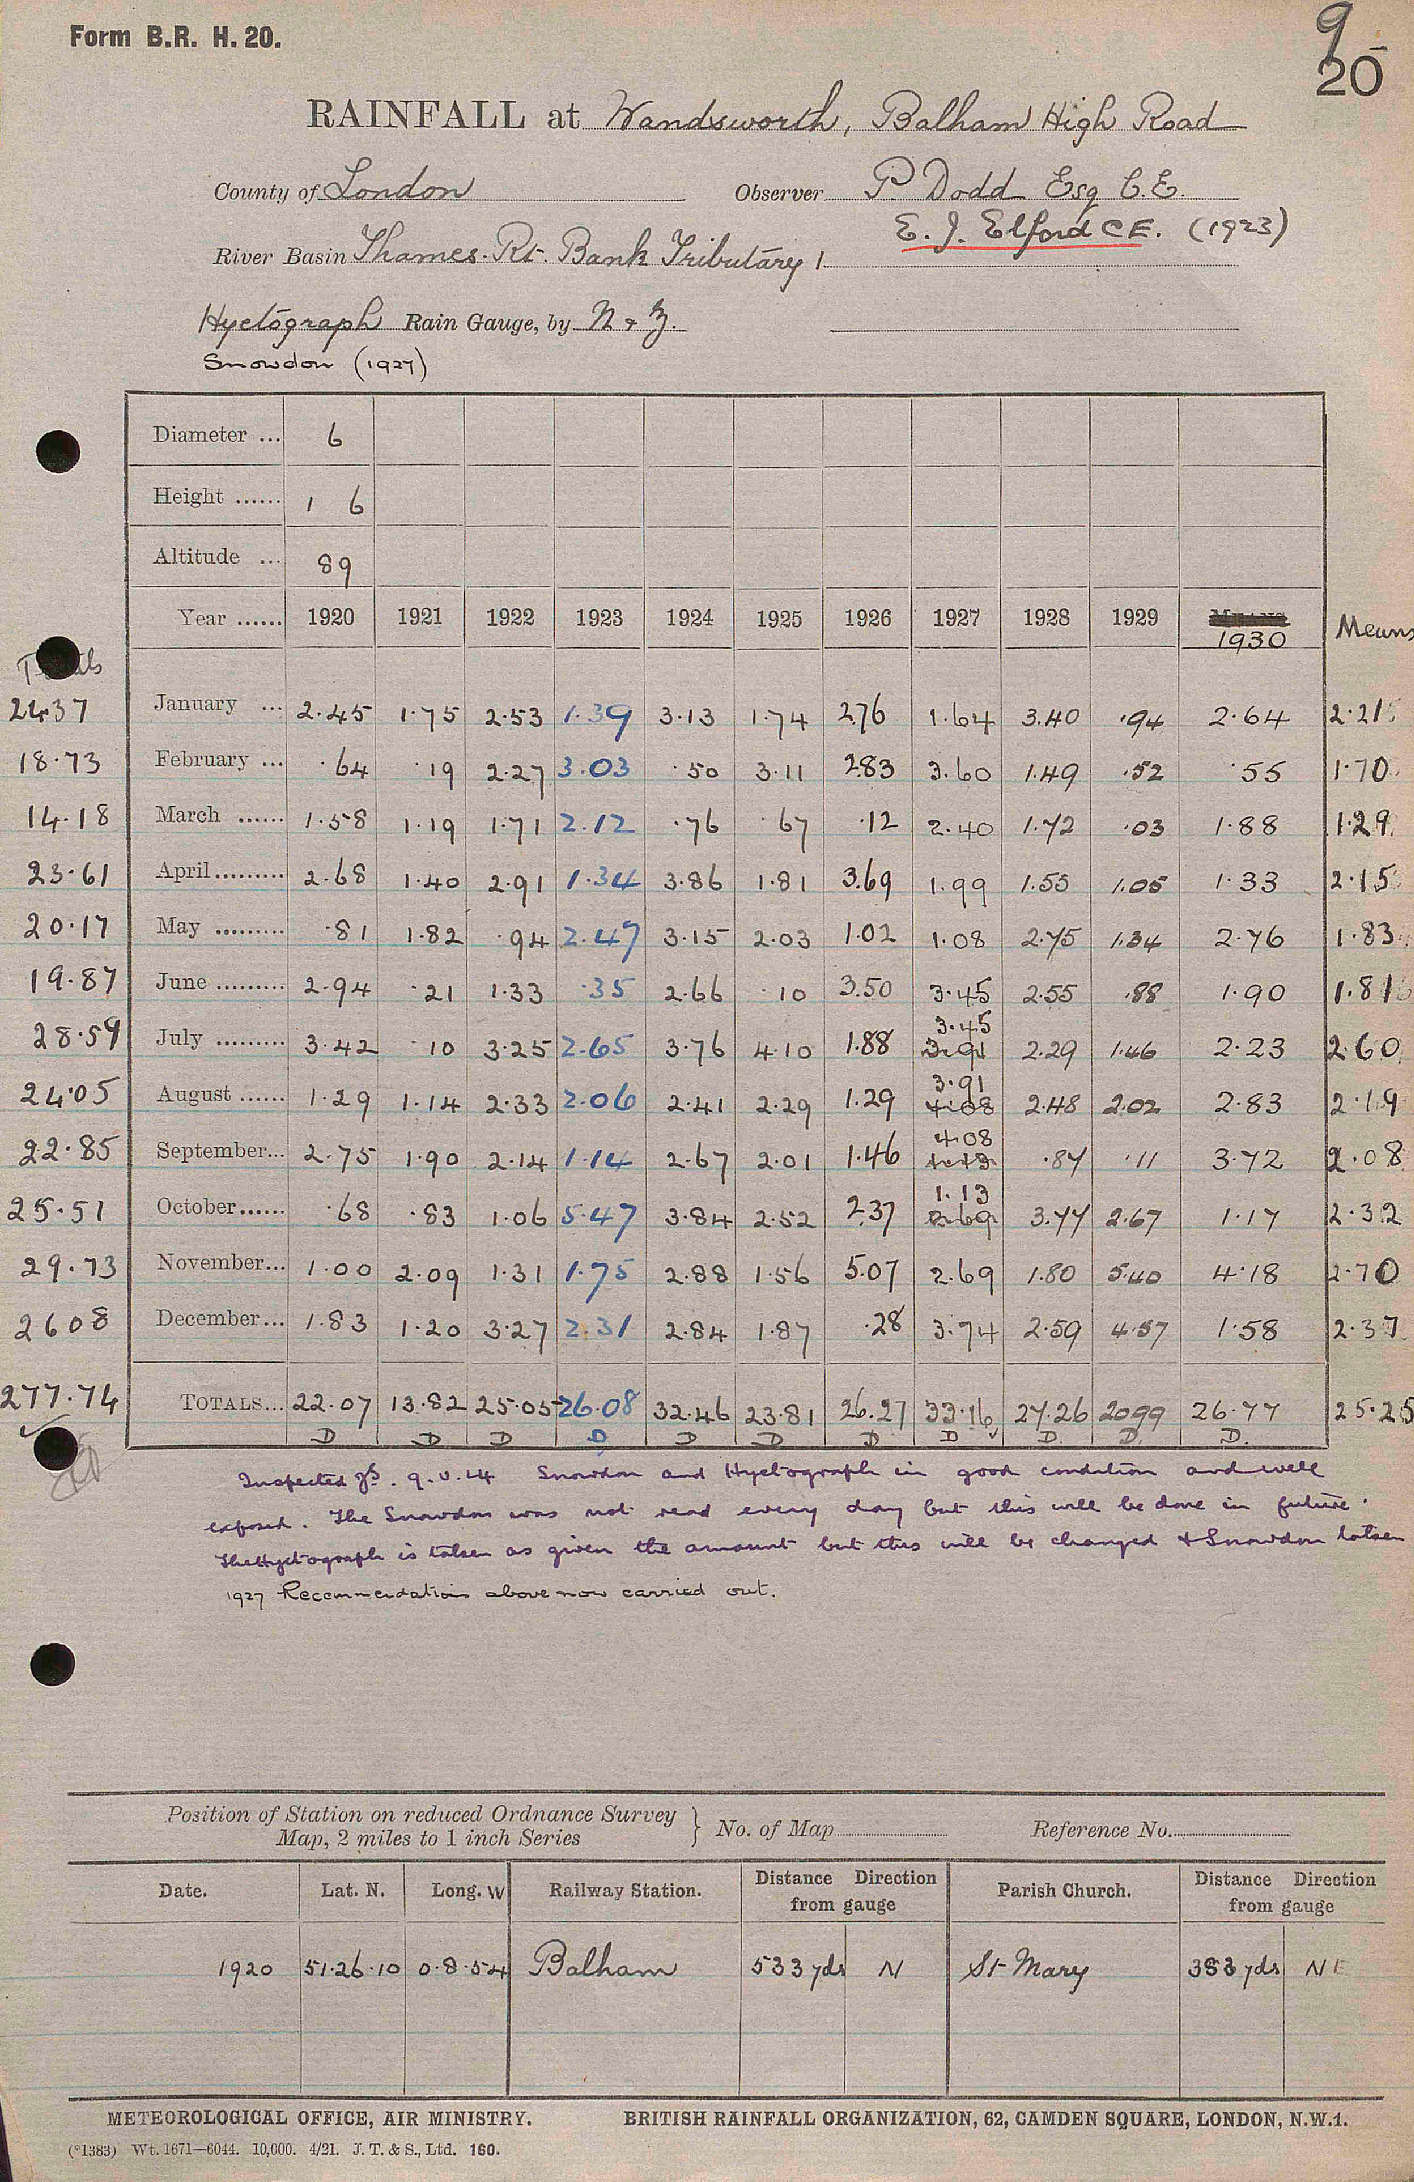 Form B.R. H. 20.
9
20
RAINFALL at Wandsworth, Balham High Road
County of London Observer P. Dodd Esq C.E.
E. J. Elford C E. (1923)
River Basin Thames. Rt. Bank Tributary 1
Hyetograph Rain Gauge, by N & Z.
Snowdon (1927)
Diameter ... 6
Height ...... 1 6
Altitude ... 89
Year ...... 1920 1921 1922 1923 1924 1925 1926 1927 1928 1929 MEANS 1930 Means
Totals
24.37 January ... 2.45 1.75 2.53 1.39 3.13 1.74 2.76 1.64 3.40 .94 2.64 2.21
18.73 February ... .64 .19 2.27 3.03 .50 3.11 2.83 3.60 1.49 .52 .55 1.70
14.18 March ...... 1.58 1.19 1.71 2.12 .76 .67 .12 2.40 1.72 .03 1.88 1.29
23.61 April......... 2.68 1.40 2.91 1.34 3.86 1.81 3.69 1.99 1.55 1.05 1.33 2.15
20.17 May ......... .81 1.82 .94 2.47 3.15 2.03 1.02 1.08 2.75 1.34 2.76 1.83
19.87 June ......... 2.94 .21 1.33 .35 2.66 .10 3.50 3.45 2.55 .88 1.90 1.81
28.59 July ......... 3.42 .10 3.25 2.65 3.76 4.10 1.88 3.45 3.91 2.29 1.46 2.23 2.60
24.05 August ...... 1.29 1.14 2.33 2.06 2.41 2.29 1.29 3.91 4.08 2.48 2.02 2.83 2.19
22.85 September... 2.75 1.90 2.14 1.14 2.67 2.01 1.46 4.08 1.13 .87 .11 3.72 2.08
25.51 October...... .68 .83 1.06 5.47 3.84 2.52 2.37 1.13 2.69 3.77 2.67 1.17 2.32
29.73 November... 1.00 2.09 1.31 1.75 2.88 1.56 5.07 2.69 1.80 5.40 4.18 2.70
26 08 December... 1.83 1.20 3.27 2.31 2.84 1.87 .28 3.74 2.59 4.57 1.58 2.37
277.74 TOTALS... 22.07 13.82 25.05 26.08 32.46 23.81 26.27 33.16 27.26 20.99 26.77 25.25
D D D D D D D D D. D. D.
Inspected 9.v.24 Snowdon and Hyetograph in good condition and well
exposed. The Snowdon was not read every day but this will be done in future.
The Hyetograph is taken as given the amount but this will be changed & Snowdon taken
1927 Recommendations above now carried out.
Position of Station on reduced Ordnance Survey
Map, 2 miles to 1 inch Series } No. of Map Reference No.
Date. Lat. N. Long. W Railway Station. Distance Direction from gauge Parish Church. Distance Direction from gauge
1920 51.26.10 0.8.54 Balham 533 yds N St Mary 383 yds NE
METEOROLOGICAL OFFICE, AIR MINISTRY. BRITISH RAINFALL ORGANIZATION, 62, CAMDEN SQUARE, LONDON, N.W.1.
(*1383) Wt. 1671—6044. 10,000. 4/21. J. T. & S., Ltd. 160.